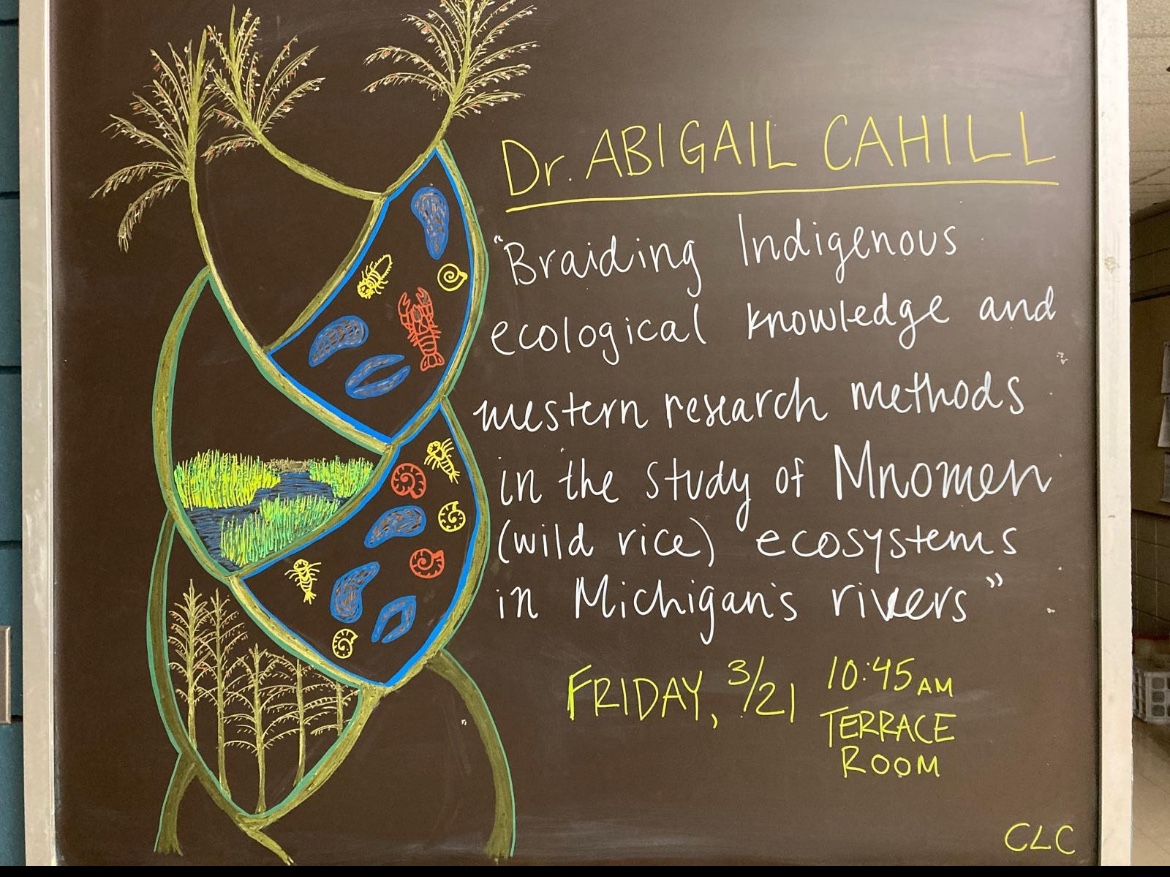 Dr. ABIGAIL CAHILL
"Braiding Indigenous
ecological knowledge and
western research methods
in the study of Mnomen
(wild rice) ecosystems
in Michigan's rivers"
FRIDAY, 3/21 10:45 AM
TERRACE
ROOM
CLC